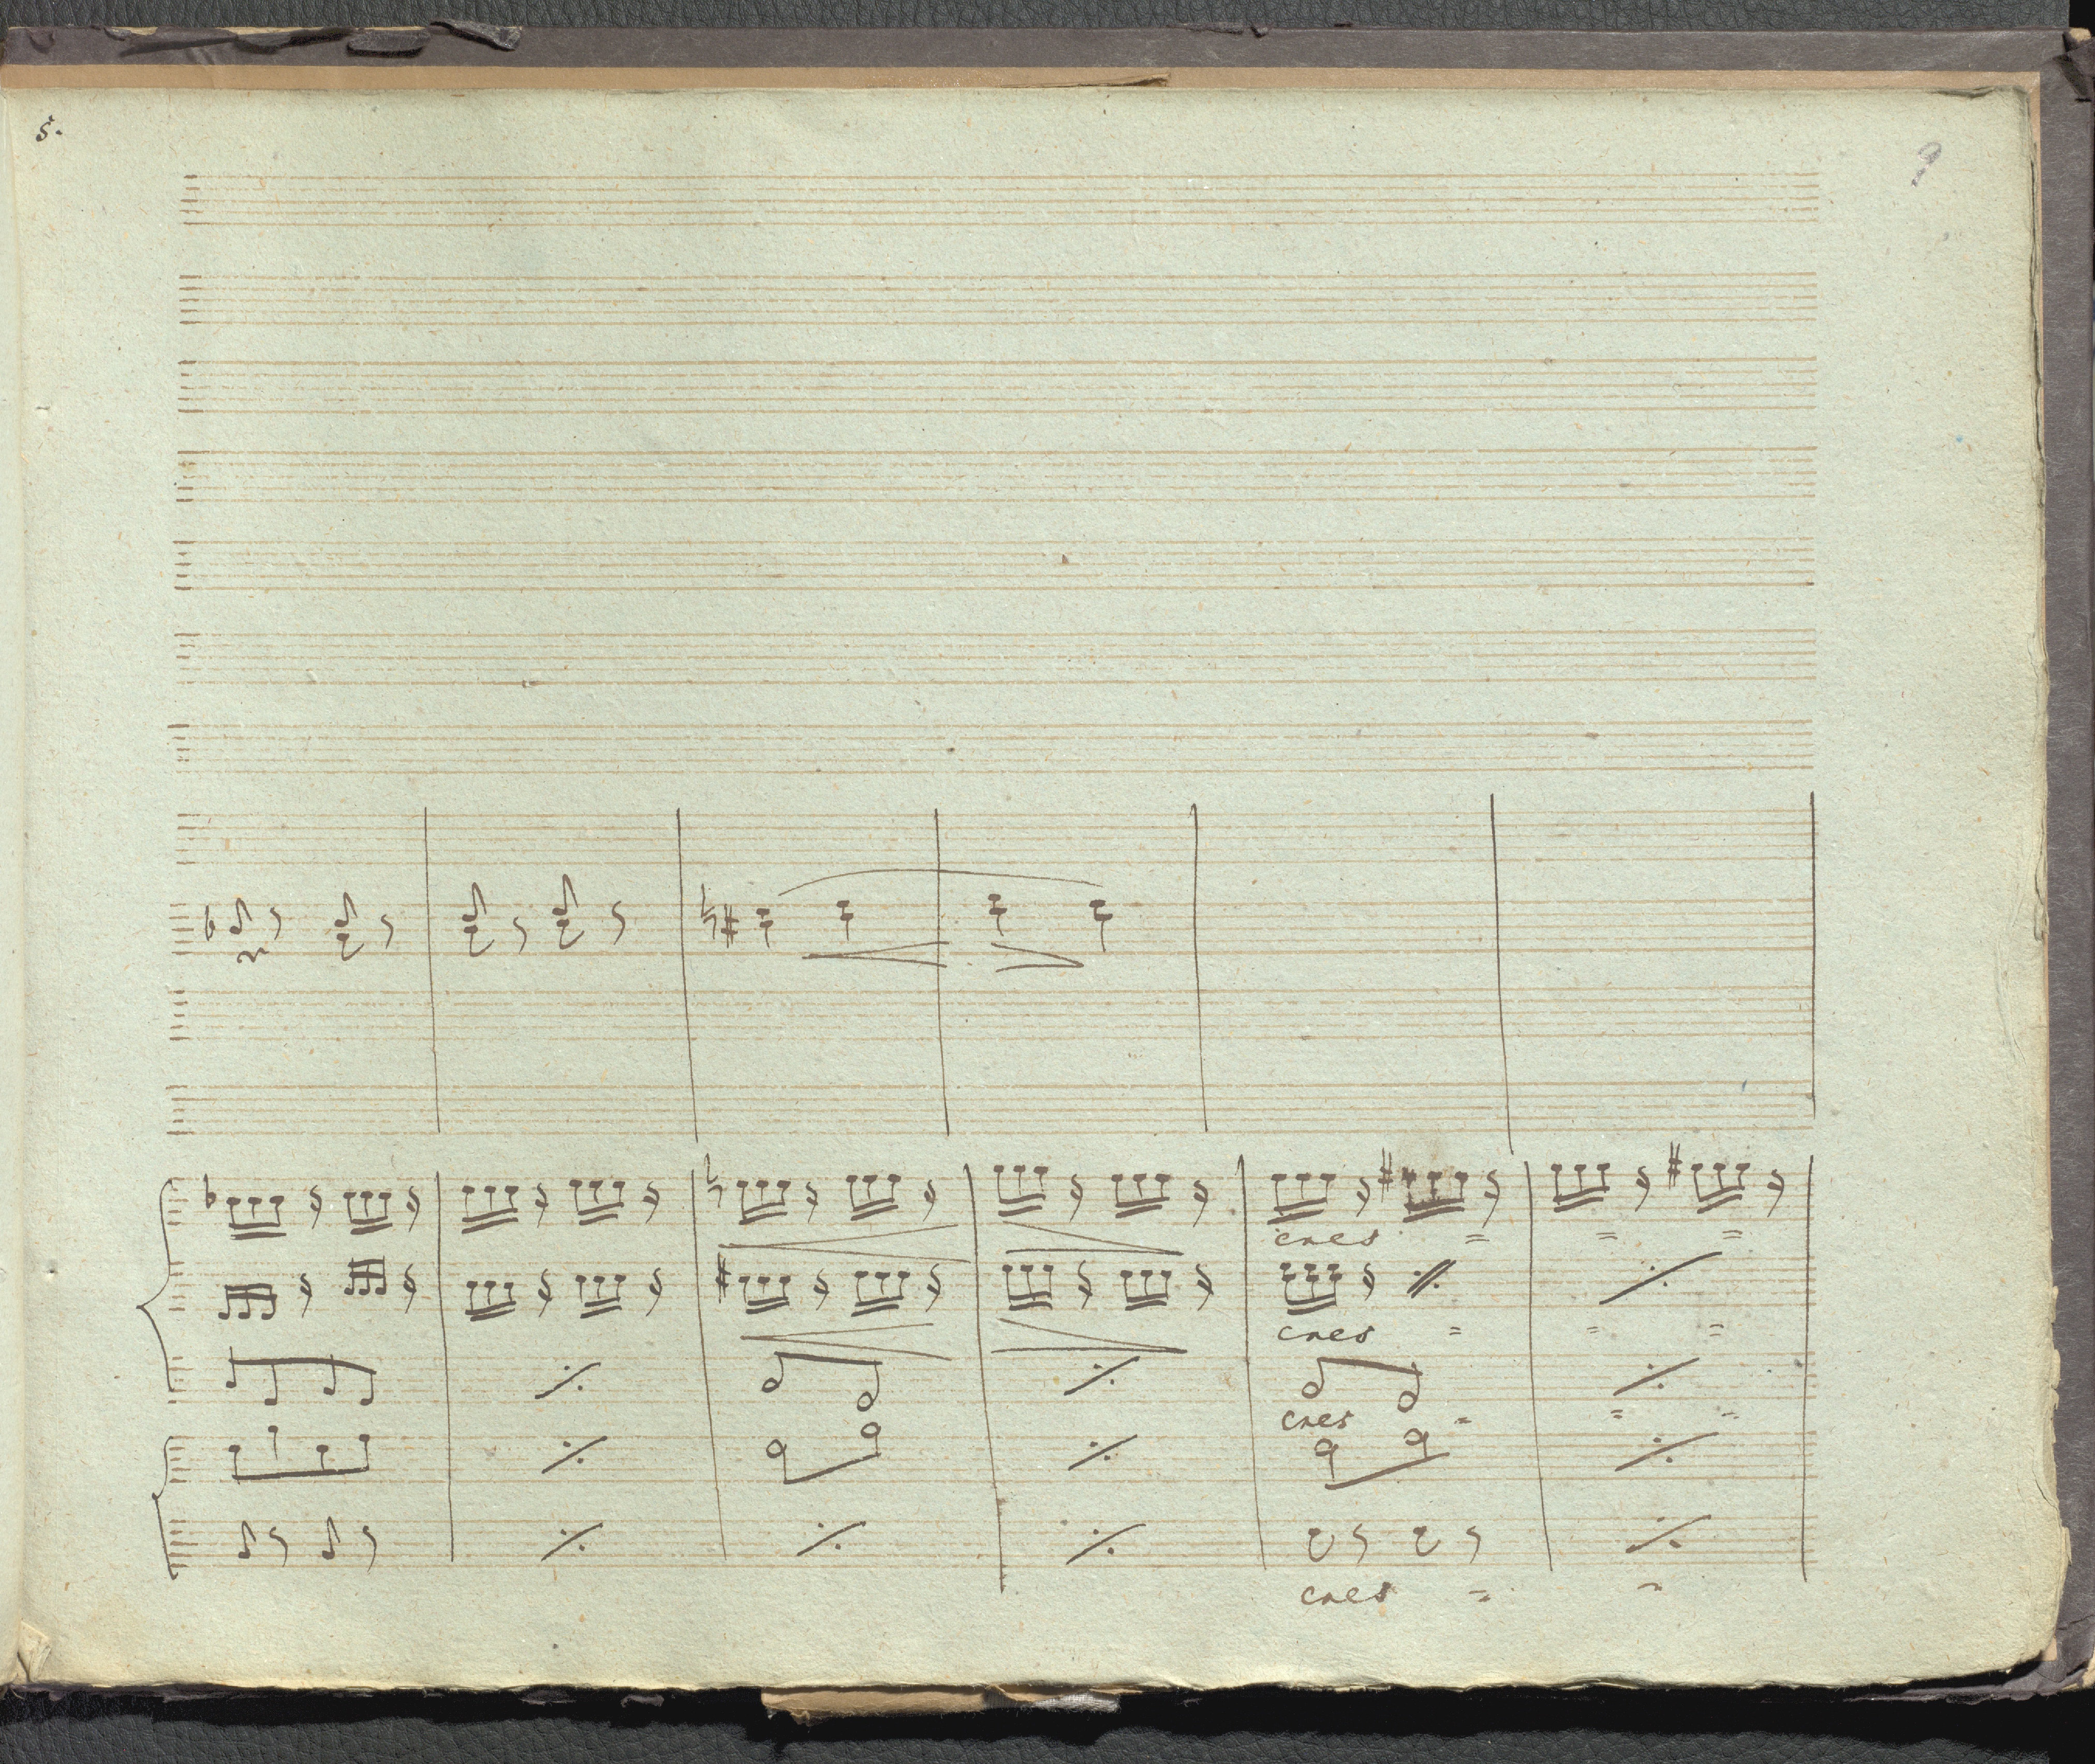 5.
9
cres = = =
cres = = =
cres = = =
cres = =